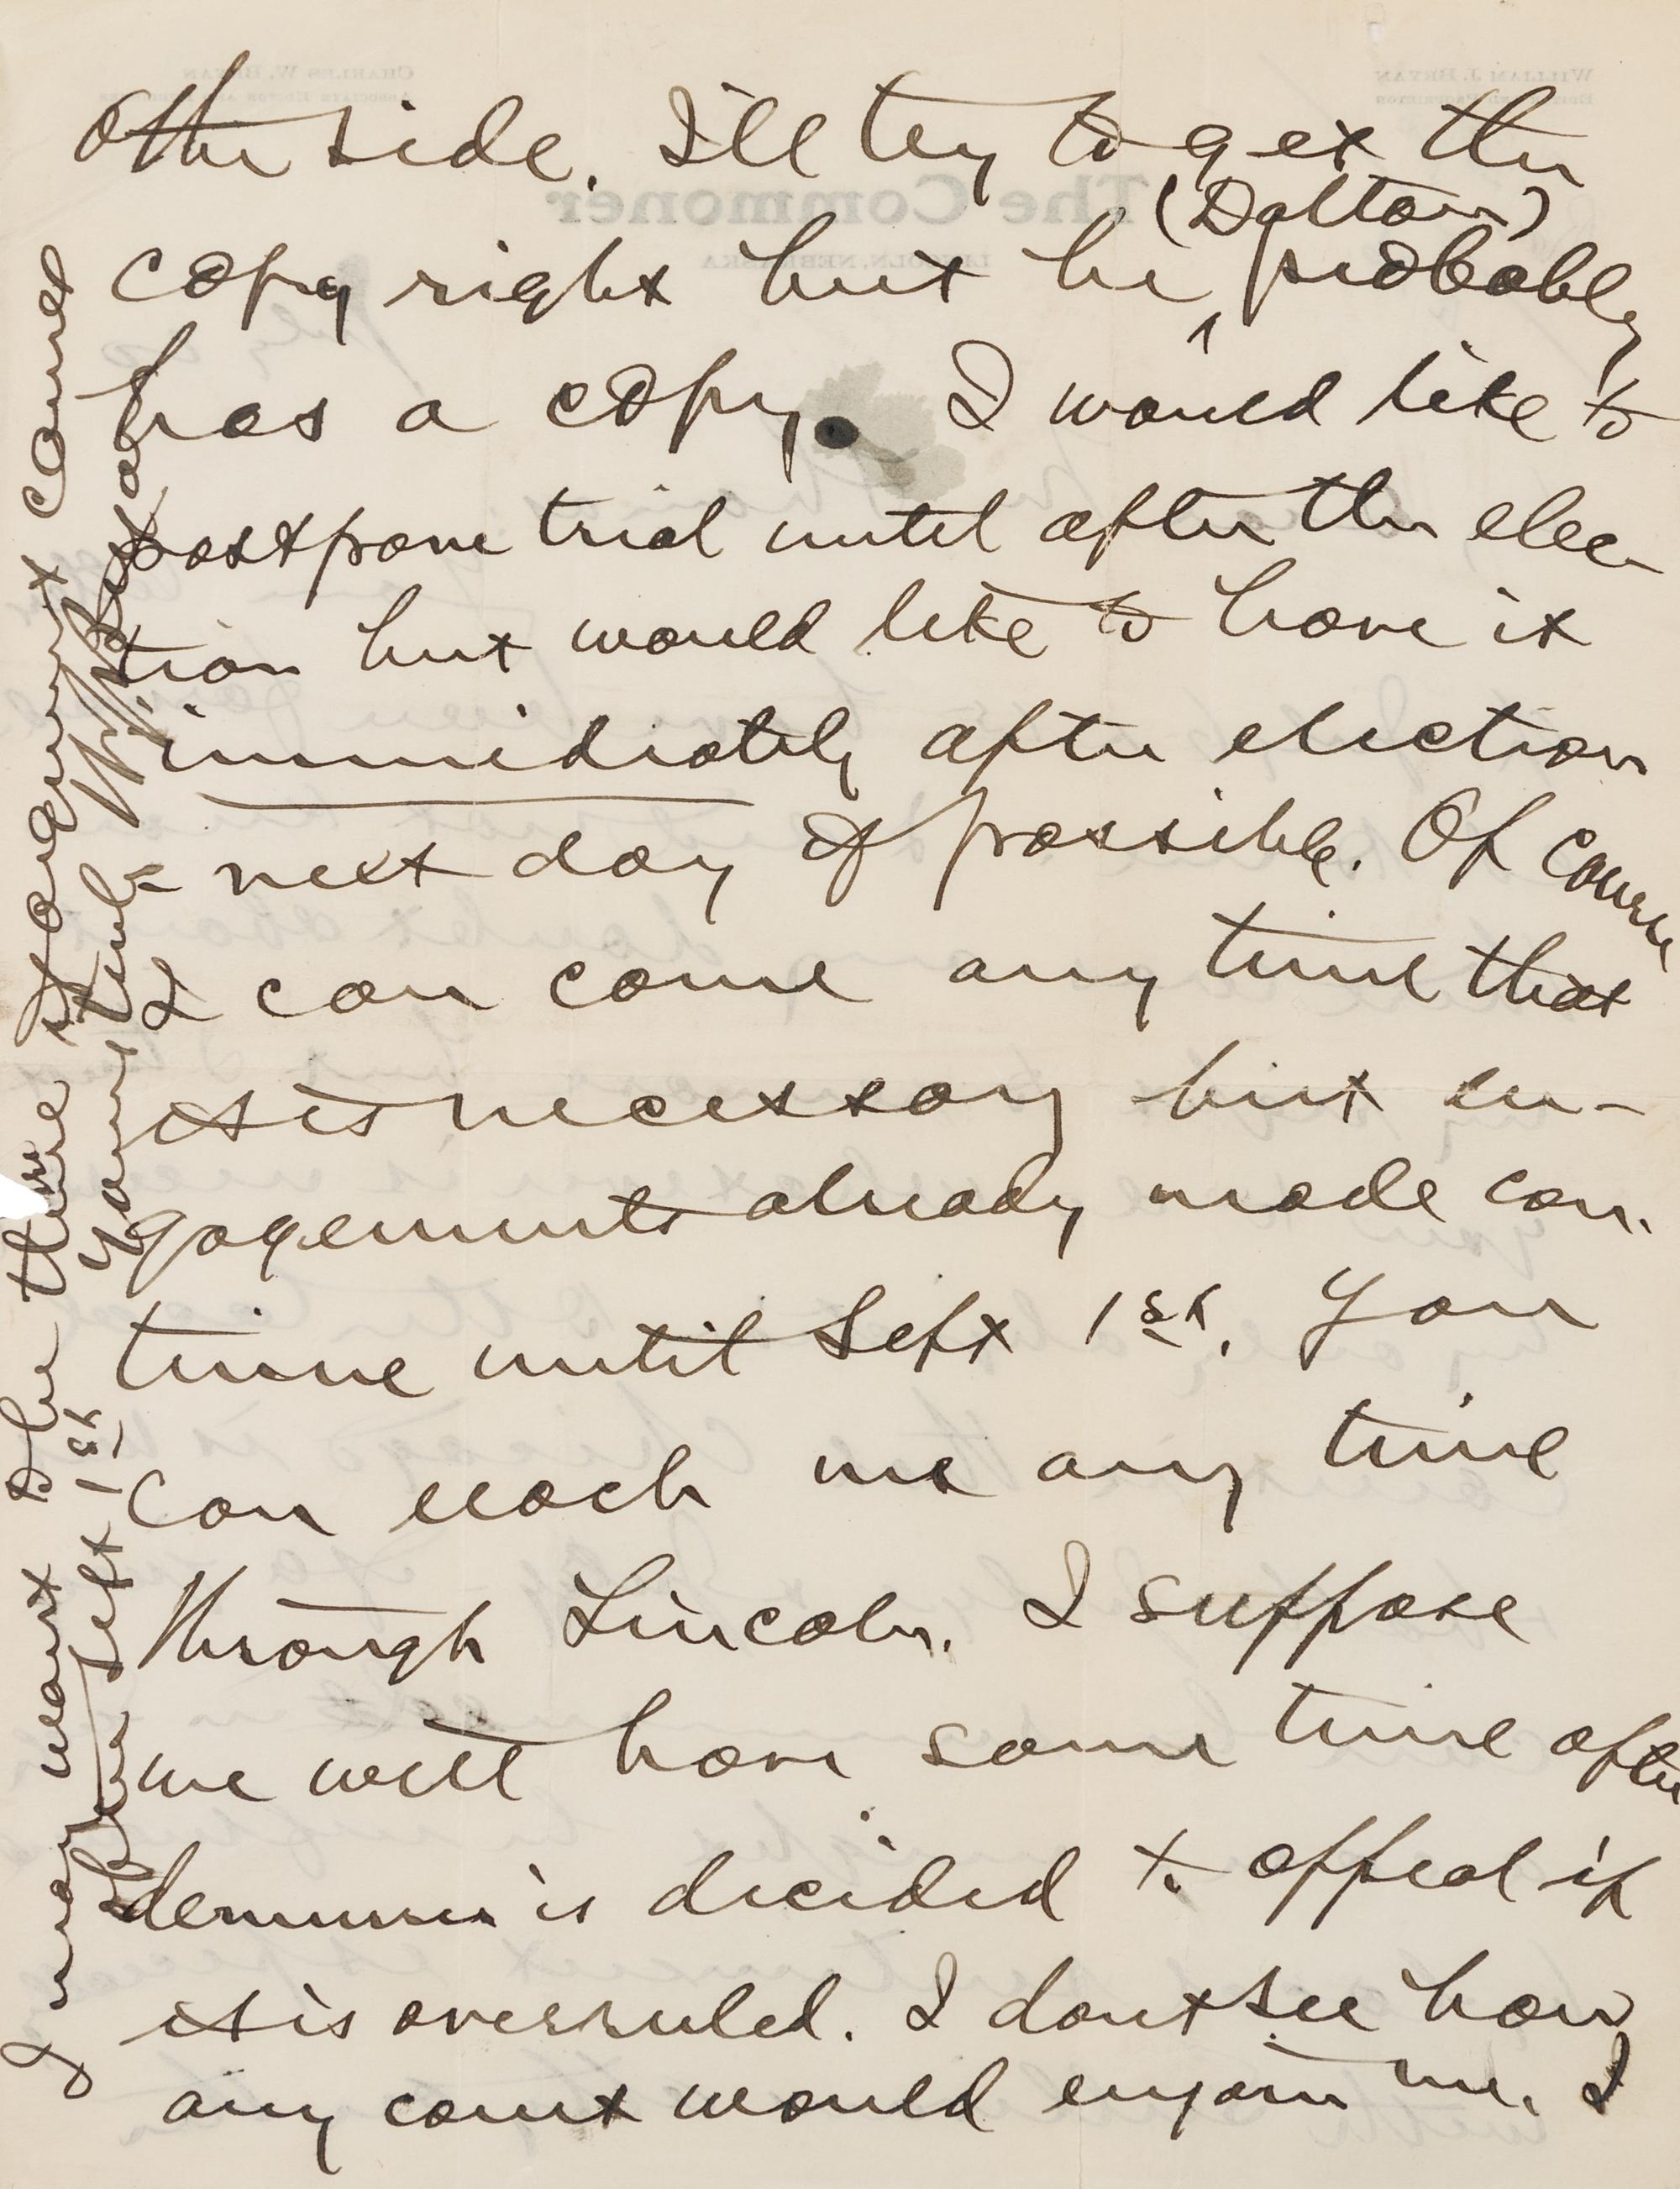 other side. I'll try to get the
copy right but he ^(Dalton) probably
has a copy. I would like to
postpone trial until after the elec-
tion but would like to have it
immediately after election
- next day if possible. Of course
I can come any time that
it is necessary but en-
gagements already made con-
tinue until Sept 1st. You
can reach me any time
through Lincoln. I suppose
we will have some time after
demurrer is decided to appeal if
it is overruled. I dont see how
any court would enjoin me. I
may want to be there if argument comes
before Sept 1st Yours truly
W. J. Bryan
The Commoner
LINCOLN, NEBRASKA
WILLIAM J. BRYAN
EDITOR AND PROPRIETOR
CHARLES W. BRYAN